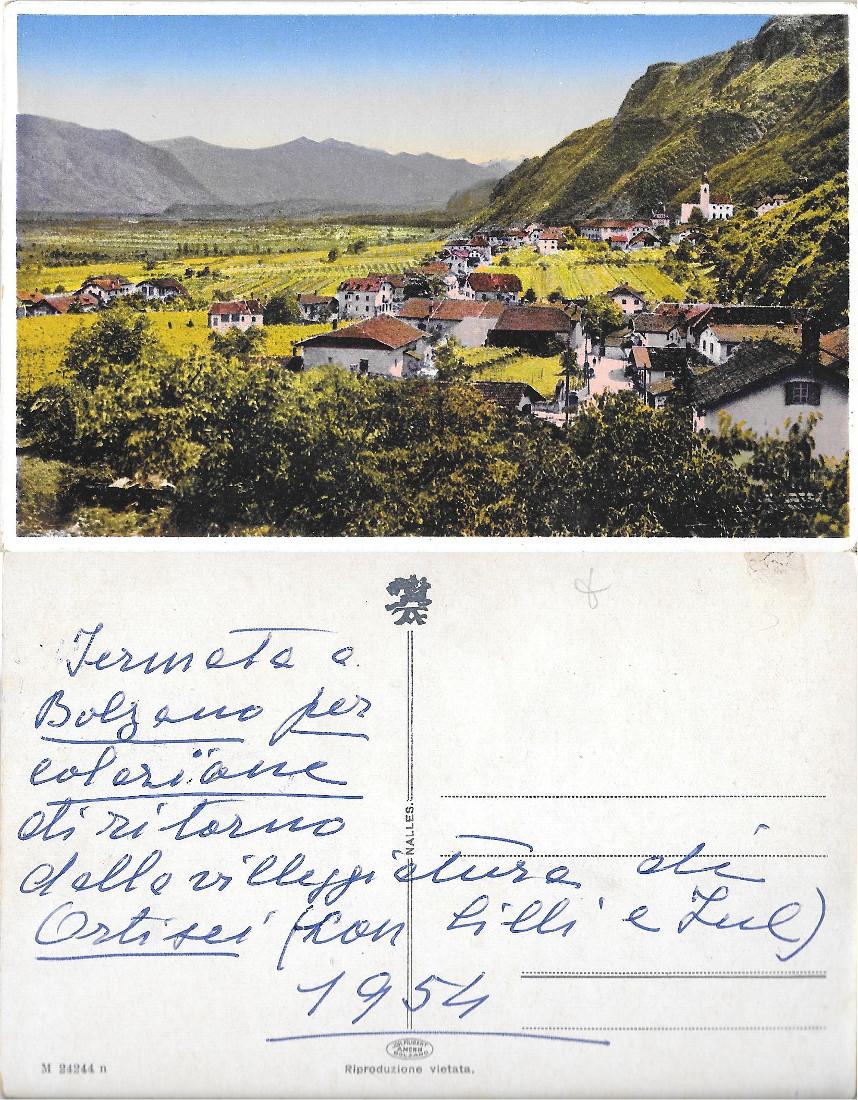 Fermata a
Bolzano per
colazione
di ritorno
dalla villeggiatura di
Ortisei (con Lilli e
1954
NALLES.
JOH. F. AMONN
BOLZANO
M 24244 n
Riproduzione vietata.